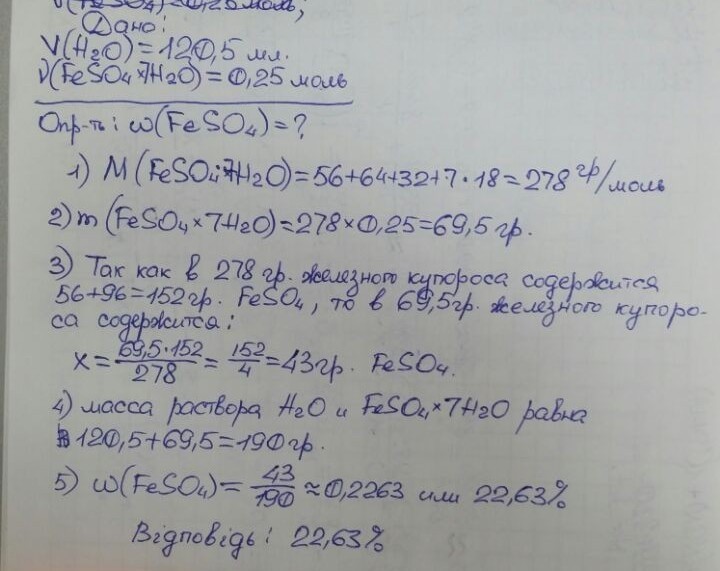 ν(FeSO4)=0,25 моль;
Дано:
V(H2O)=120,5 мл.
ν(FeSO4×7H2O)=0,25 моль
Опр-ть: ω(FeSO4)=?
1) M(FeSO4·7H2O)=56+64+32+7·18=278 гр/моль
2) m(FeSO4×7H2O)=278×0,25=69,5 гр.
3) Так как в 278 гр. железного купороса содержится
56+96=152 гр. FeSO4, то в 69,5 гр. железного купоро-
са содержится:
x=69,5·152/278=152/4=43 гр. FeSO4.
4) масса раствора H2O и FeSO4×7H2O равна
120,5+69,5=190 гр.
5) ω(FeSO4)=43/190≈0,2263 или 22,63%
Відповідь: 22,63%